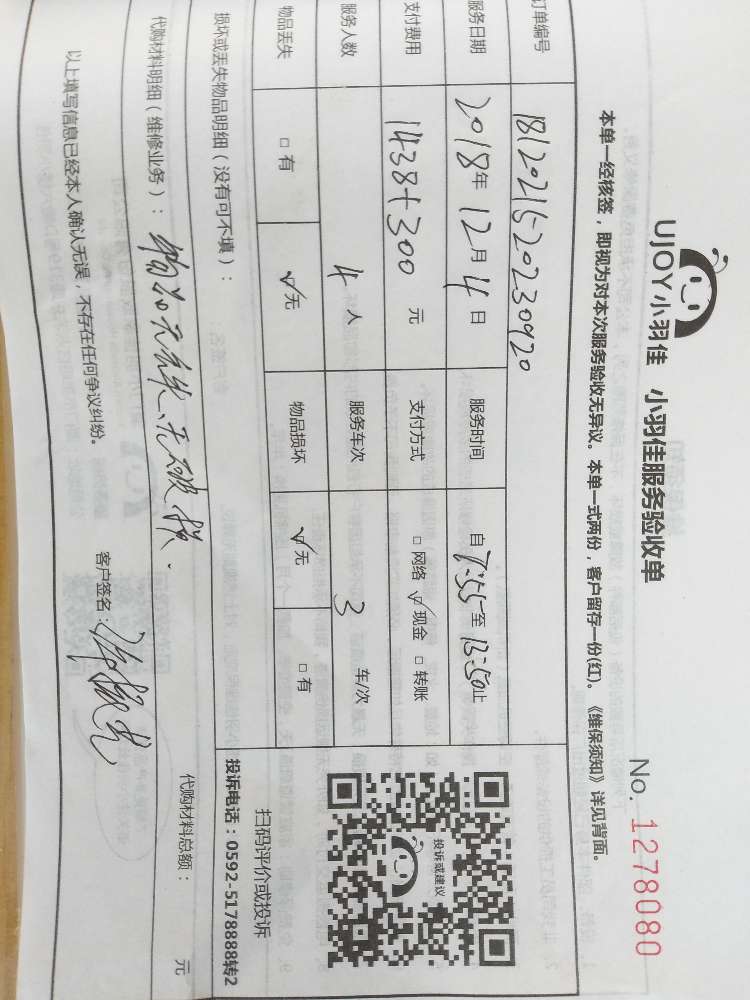 UJOY小羽佳 小羽佳服务验收单
No. 1278080
本单一经核签，即视为对本次服务验收无异议。本单一式两份，客户留存一份(红)。《维保须知》详见背面。
订单编号 1812021520230920
服务日期 2018年12月4日 服务时间 自7:55至13:50止
支付费用 1438+300 元 支付方式 □网络 ☑现金 □转账
服务人数 4 人 服务车次 3 车/次
物品丢失 □有 ☑无 物品损坏 ☑无 □有
投诉或建议
扫码评价或投诉
投诉电话：0592-5178888转2
损坏或丢失物品明细（没有可不填）：
物品无丢失、无破损.
代购材料明细（维修业务）： 代购材料总额： 元
以上填写信息已经本人确认无误，不存在任何争议纠纷。
客户签名：